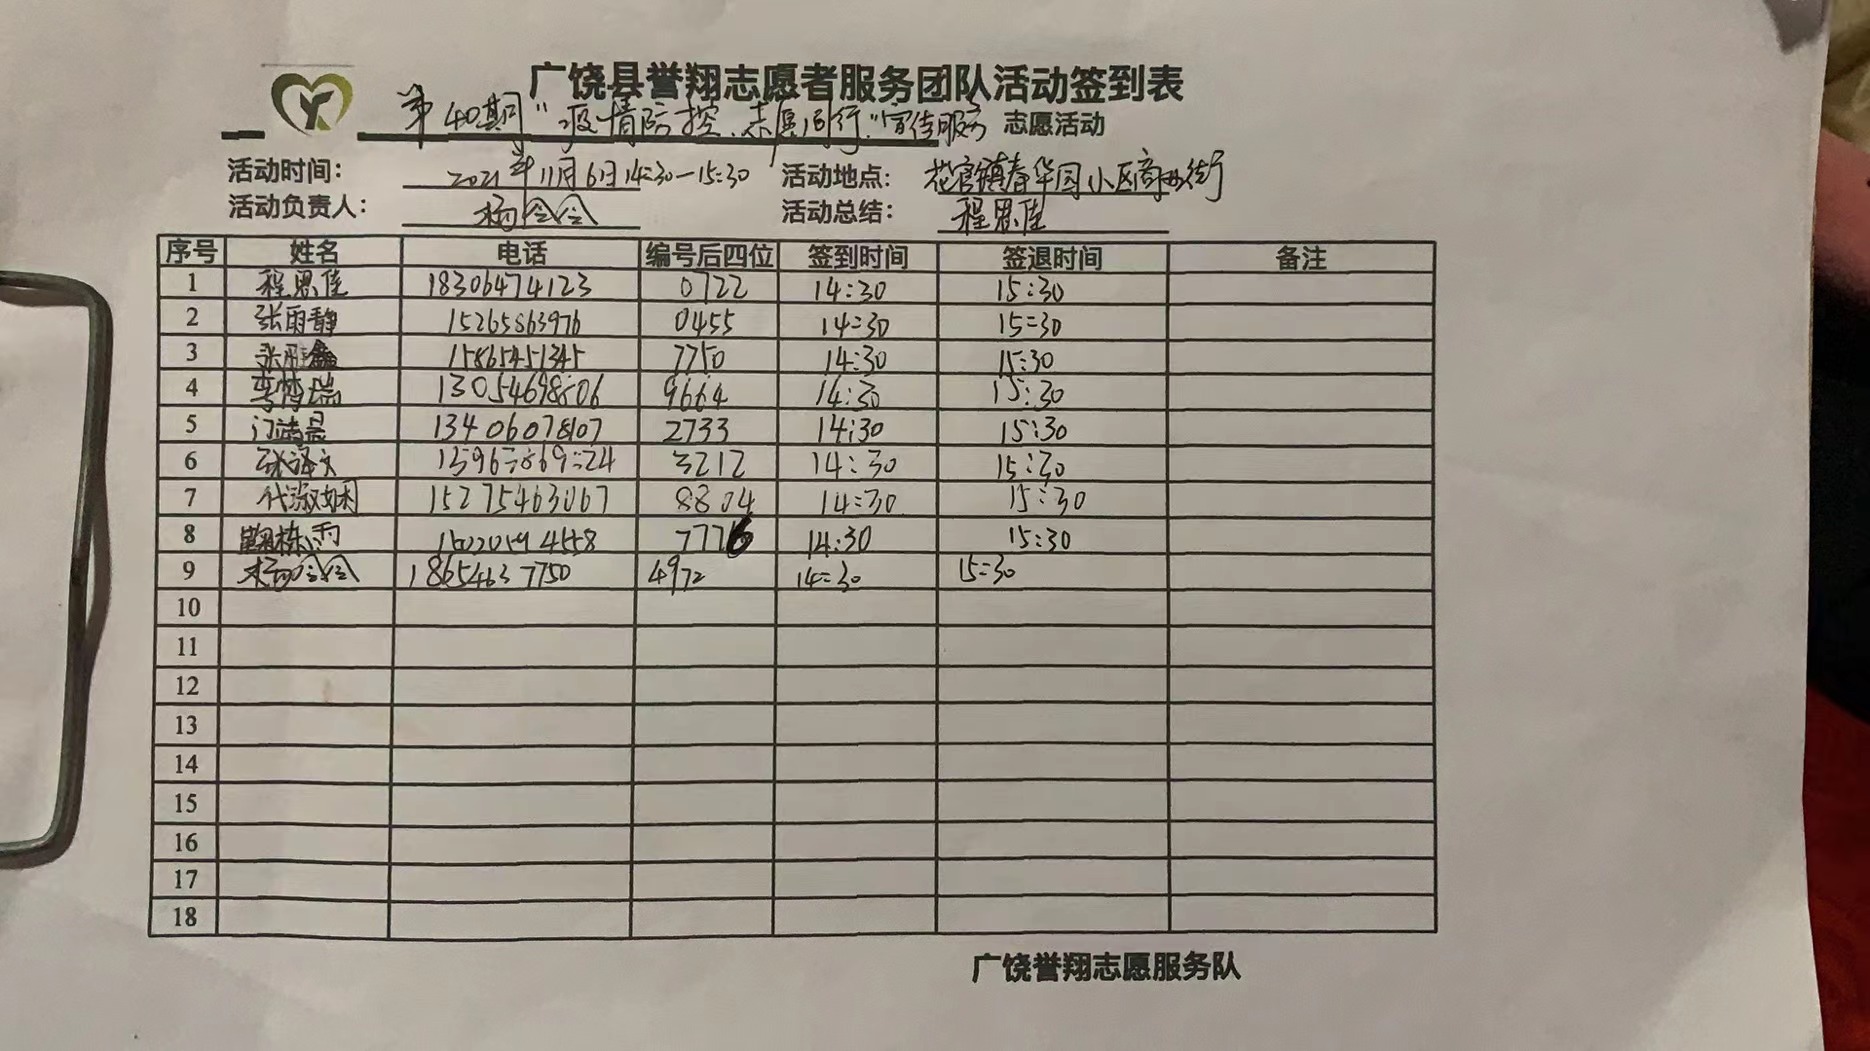 广饶县誉翔志愿者服务团队活动签到表
第40期"疫情防控、志愿同行"宣传服务 志愿活动
活动时间： 2021年11月6日14:30—15:30 活动地点： 花官镇春华园小区商业街
活动负责人： 杨会会 活动总结： 程思佳
序号 姓名 电话 编号后四位 签到时间 签退时间 备注
1 程思佳 18306474123 0722 14:30 15:30
2 张雨静 15265863976 0455 14:30 15:30
3 15865451345 7750 14:30 15:30
4 李梦瑞 13054698506 9664 14:30 15:30
5 13406078107 2733 14:30 15:30
6 3212 14:30 15:30
7 代淑娴 15275463067 8804 14:30 15:30
8 7776 14:30 15:30
9 杨会会 18654637750 4972 14:30 15:30
10
11
12
13
14
15
16
17
18
广饶誉翔志愿服务队